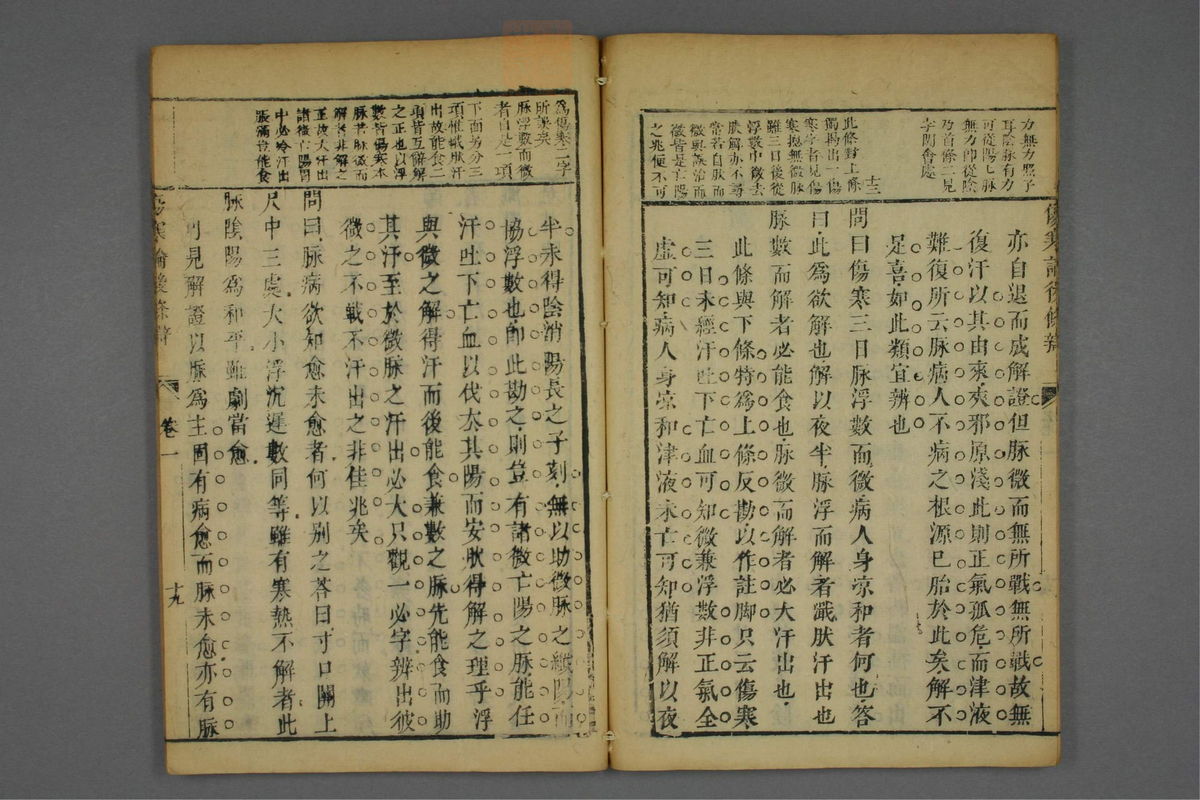 力無力照子
耳陰脉有力
可從陽七脉
無力仰從陰
乃首條二見
字閒會處
十三
此條對上條
獨揭出一傷
寒字者見傷
寒總無微脉
雖三日後從
浮數中微去
狀解亦不尋
常若自狀而
微與誤治而
微皆是亡陽
之兆便不可
傷寒論後條辯
亦自退而成解證但脉微而無所戰無所戰故無
復汗以其由來爽邪原淺此則正氣孤危而津液
難復所云脉病人不病之根源已胎於此矣解不
足喜如此類宜辨也
問曰傷寒三日脉浮數而微病人身凉和者何也答
曰此爲欲解也解以夜半脉浮而解者濈狀汗出也
脉數而解者必能食也脉微而解者必大汗出也
此條與下條特爲上條反勘以作註脚只云傷寒
三日未經汗吐下亡血可知微兼浮數非正氣全
虛可知病人身凉和津液未亡可知猶須解以夜
爲傷寒二字
所誤矣
脉浮數而微
者自是一項
下面另分三
項惟濈狀汗
出故能食二
項皆互解解
之正也以浮
數皆傷寒本
脉若脉微而
解者非解之
正故大汗出
諸微亡陽胃
中必冷汗出
脹滿豈能食
半未得陰消陽長之子刻無以助微脉之纖陽而
協浮數也卽此勘之則豈有諸微亡陽之脉能任
汗吐下亡血以伐太其陽而安狀得解之理乎浮
與微之解得汗而後能食兼數之脉先能食而助
其汗至於微脉之汗出必大只觀一必字辨出彼
微之不戰不汗出之非佳兆矣
問曰脉病欲知愈未愈者何以别之荅曰寸口關上
尺中三處大小浮沉遲數同等雖有寒熱不解者此
脉陰陽爲和平雖劇當愈
見解證以脉爲主固有病愈而脉未愈亦有脉
傷寒論後條辯
卷一
十九